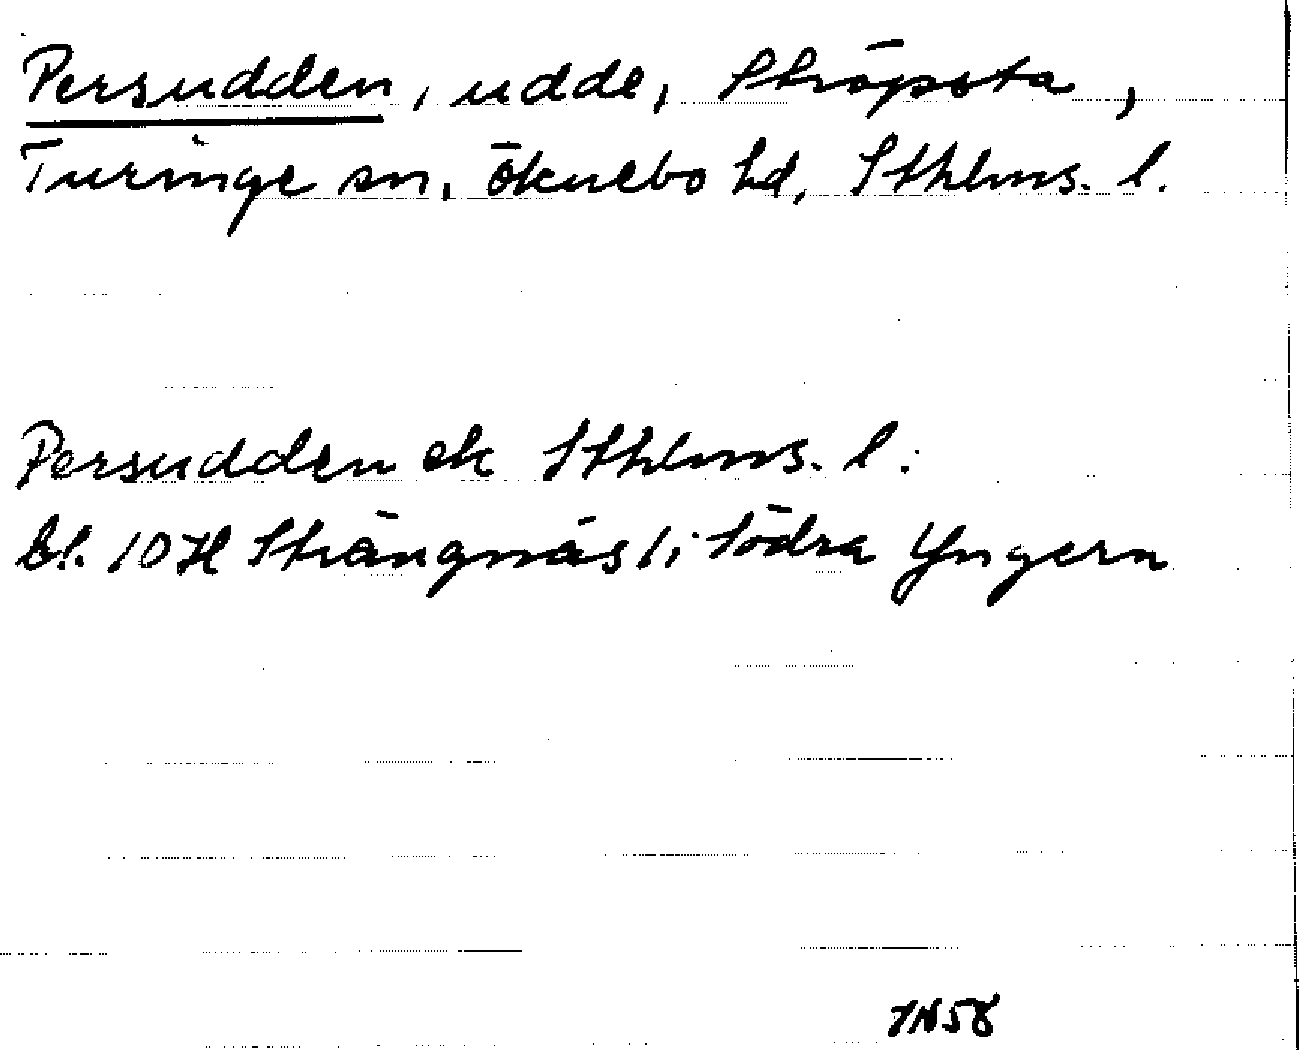 Persudden, udde, Ströpsta,
Turinge sn, Öknebo hd, Sthlms. l.
Persudden ek Sthlms. l.
bl. 10H Strängnäs 1; Södra Yngern